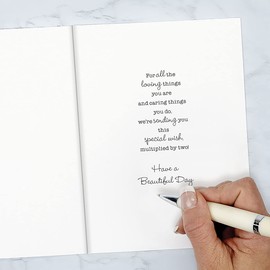 For all the
loving things
you are
and caring things
you do,
we're sending you
this
special wish,
multiplied by two!
Have a
Beautiful Day